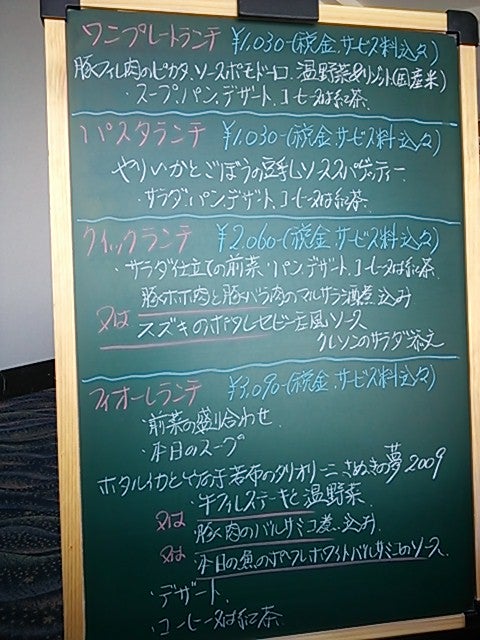 ワンプレートランチ ¥1,030-(税金、サービス料込々)
豚フィレ肉のピカタ、ソースポモドーロ、温野菜&リゾット(国産米)
・スープ、パン、デザート、コーヒー又は紅茶、
パスタランチ ¥1,030-(税金、サービス料込々)
やりいかとごぼうの豆乳ソーススパゲッティー
・サラダ、パン、デザート、コーヒー又は紅茶、
クイックランチ ¥2,060-(税金、サービス料込々)
・サラダ仕立ての前菜・パン、デザート、コーヒー又は紅茶
豚ホホ肉と豚バラ肉のマルサラ酒煮込み
又は スズキのポワレ セビーチェ風ソース
クレソンのサラダ添え
フィオーレランチ ¥3,090-(税金、サービス料込々)
・前菜の盛り合わせ
・本日のスープ
ホタルイカと竹の子 若布のタリオリーニ さぬきの夢2009
・牛フィレステーキと温野菜
又は ・豚肉のバルサミコ煮込み
又は ・本日の魚のポワレ ホワイトバルサミコのソース
・デザート
・コーヒー又は紅茶